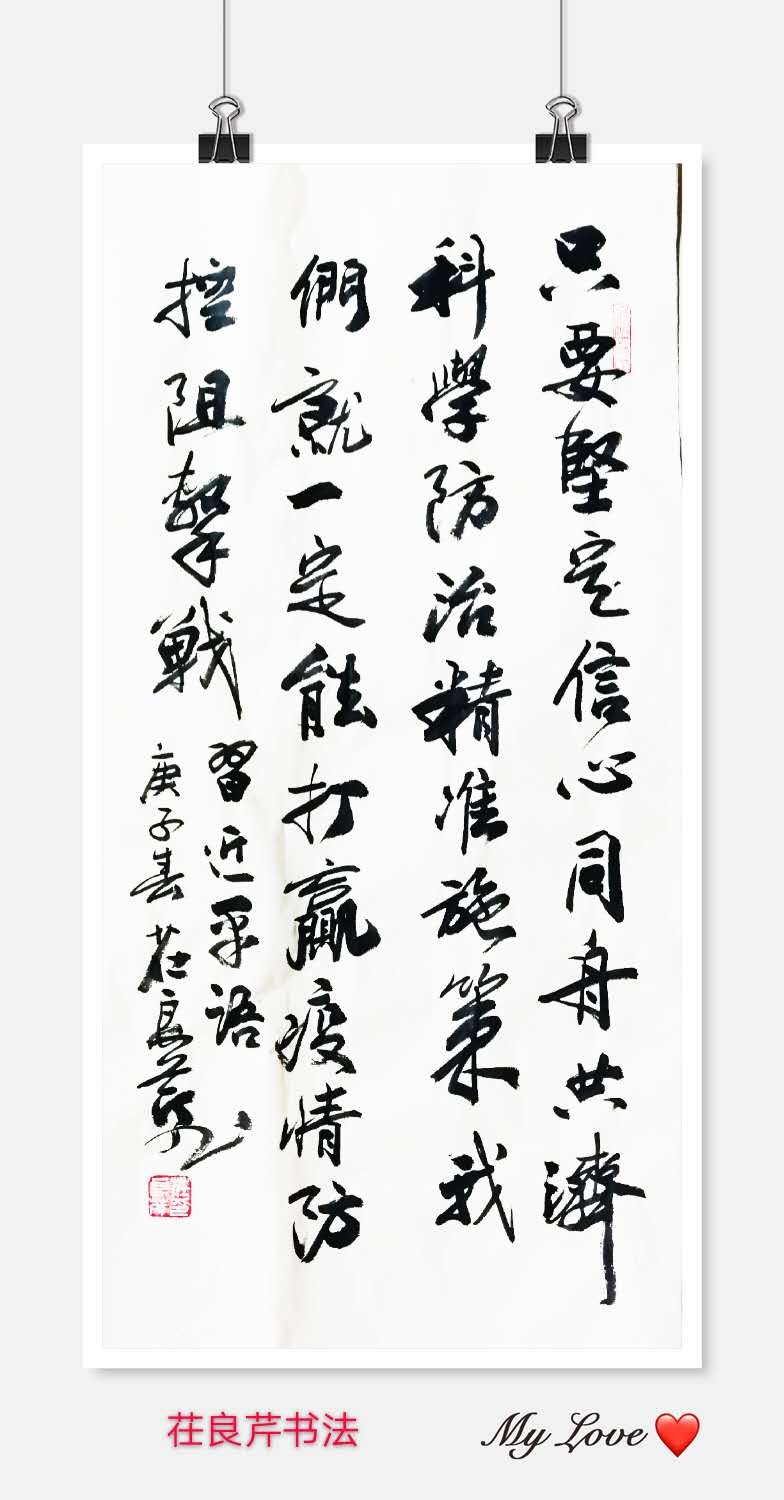 只要堅定信心同舟共濟
科學防治精准施策我
們就一定能打赢疫情防
控阻擊戰
習近平語
庚子春茌良芹
茌良芹书法
My Love